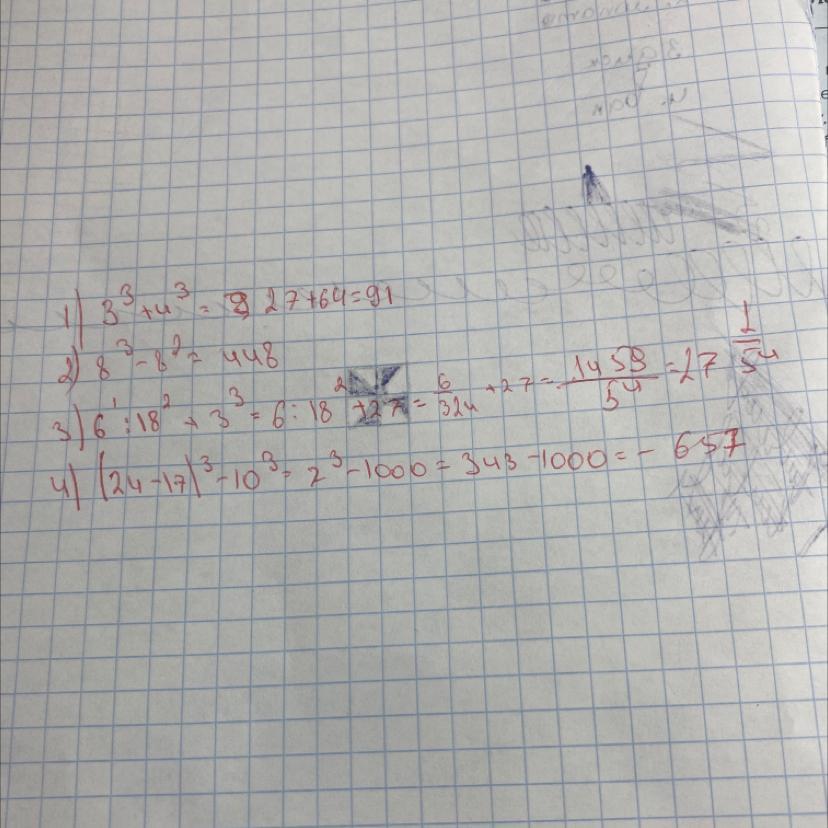 1) 3³+4³ = 27+64=91
2) 8³-8²= 448
3) 6¹:18²+3³=6:18²+27=6/324+27=1459/54=27 1/54
4) (24-17)³-10³=7³-1000=343-1000=-657